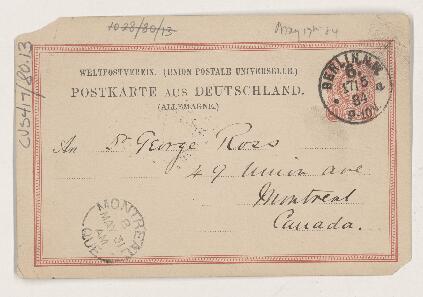 1028/80/13
May 17th 84
CUS417/80.13
WELTPOSTVEREIN. (UNION POSTALE UNIVERSELLE.)
POSTKARTE AUS DEUTSCHLAND.
(ALLEMAGNE.)
BERLIN.N.W.
6
17/5
84
9-10V
a
An Dr George Ross
49 Union ave
Montreal
Canada.
MONTREAL
8
MAY 31
AM
QUE